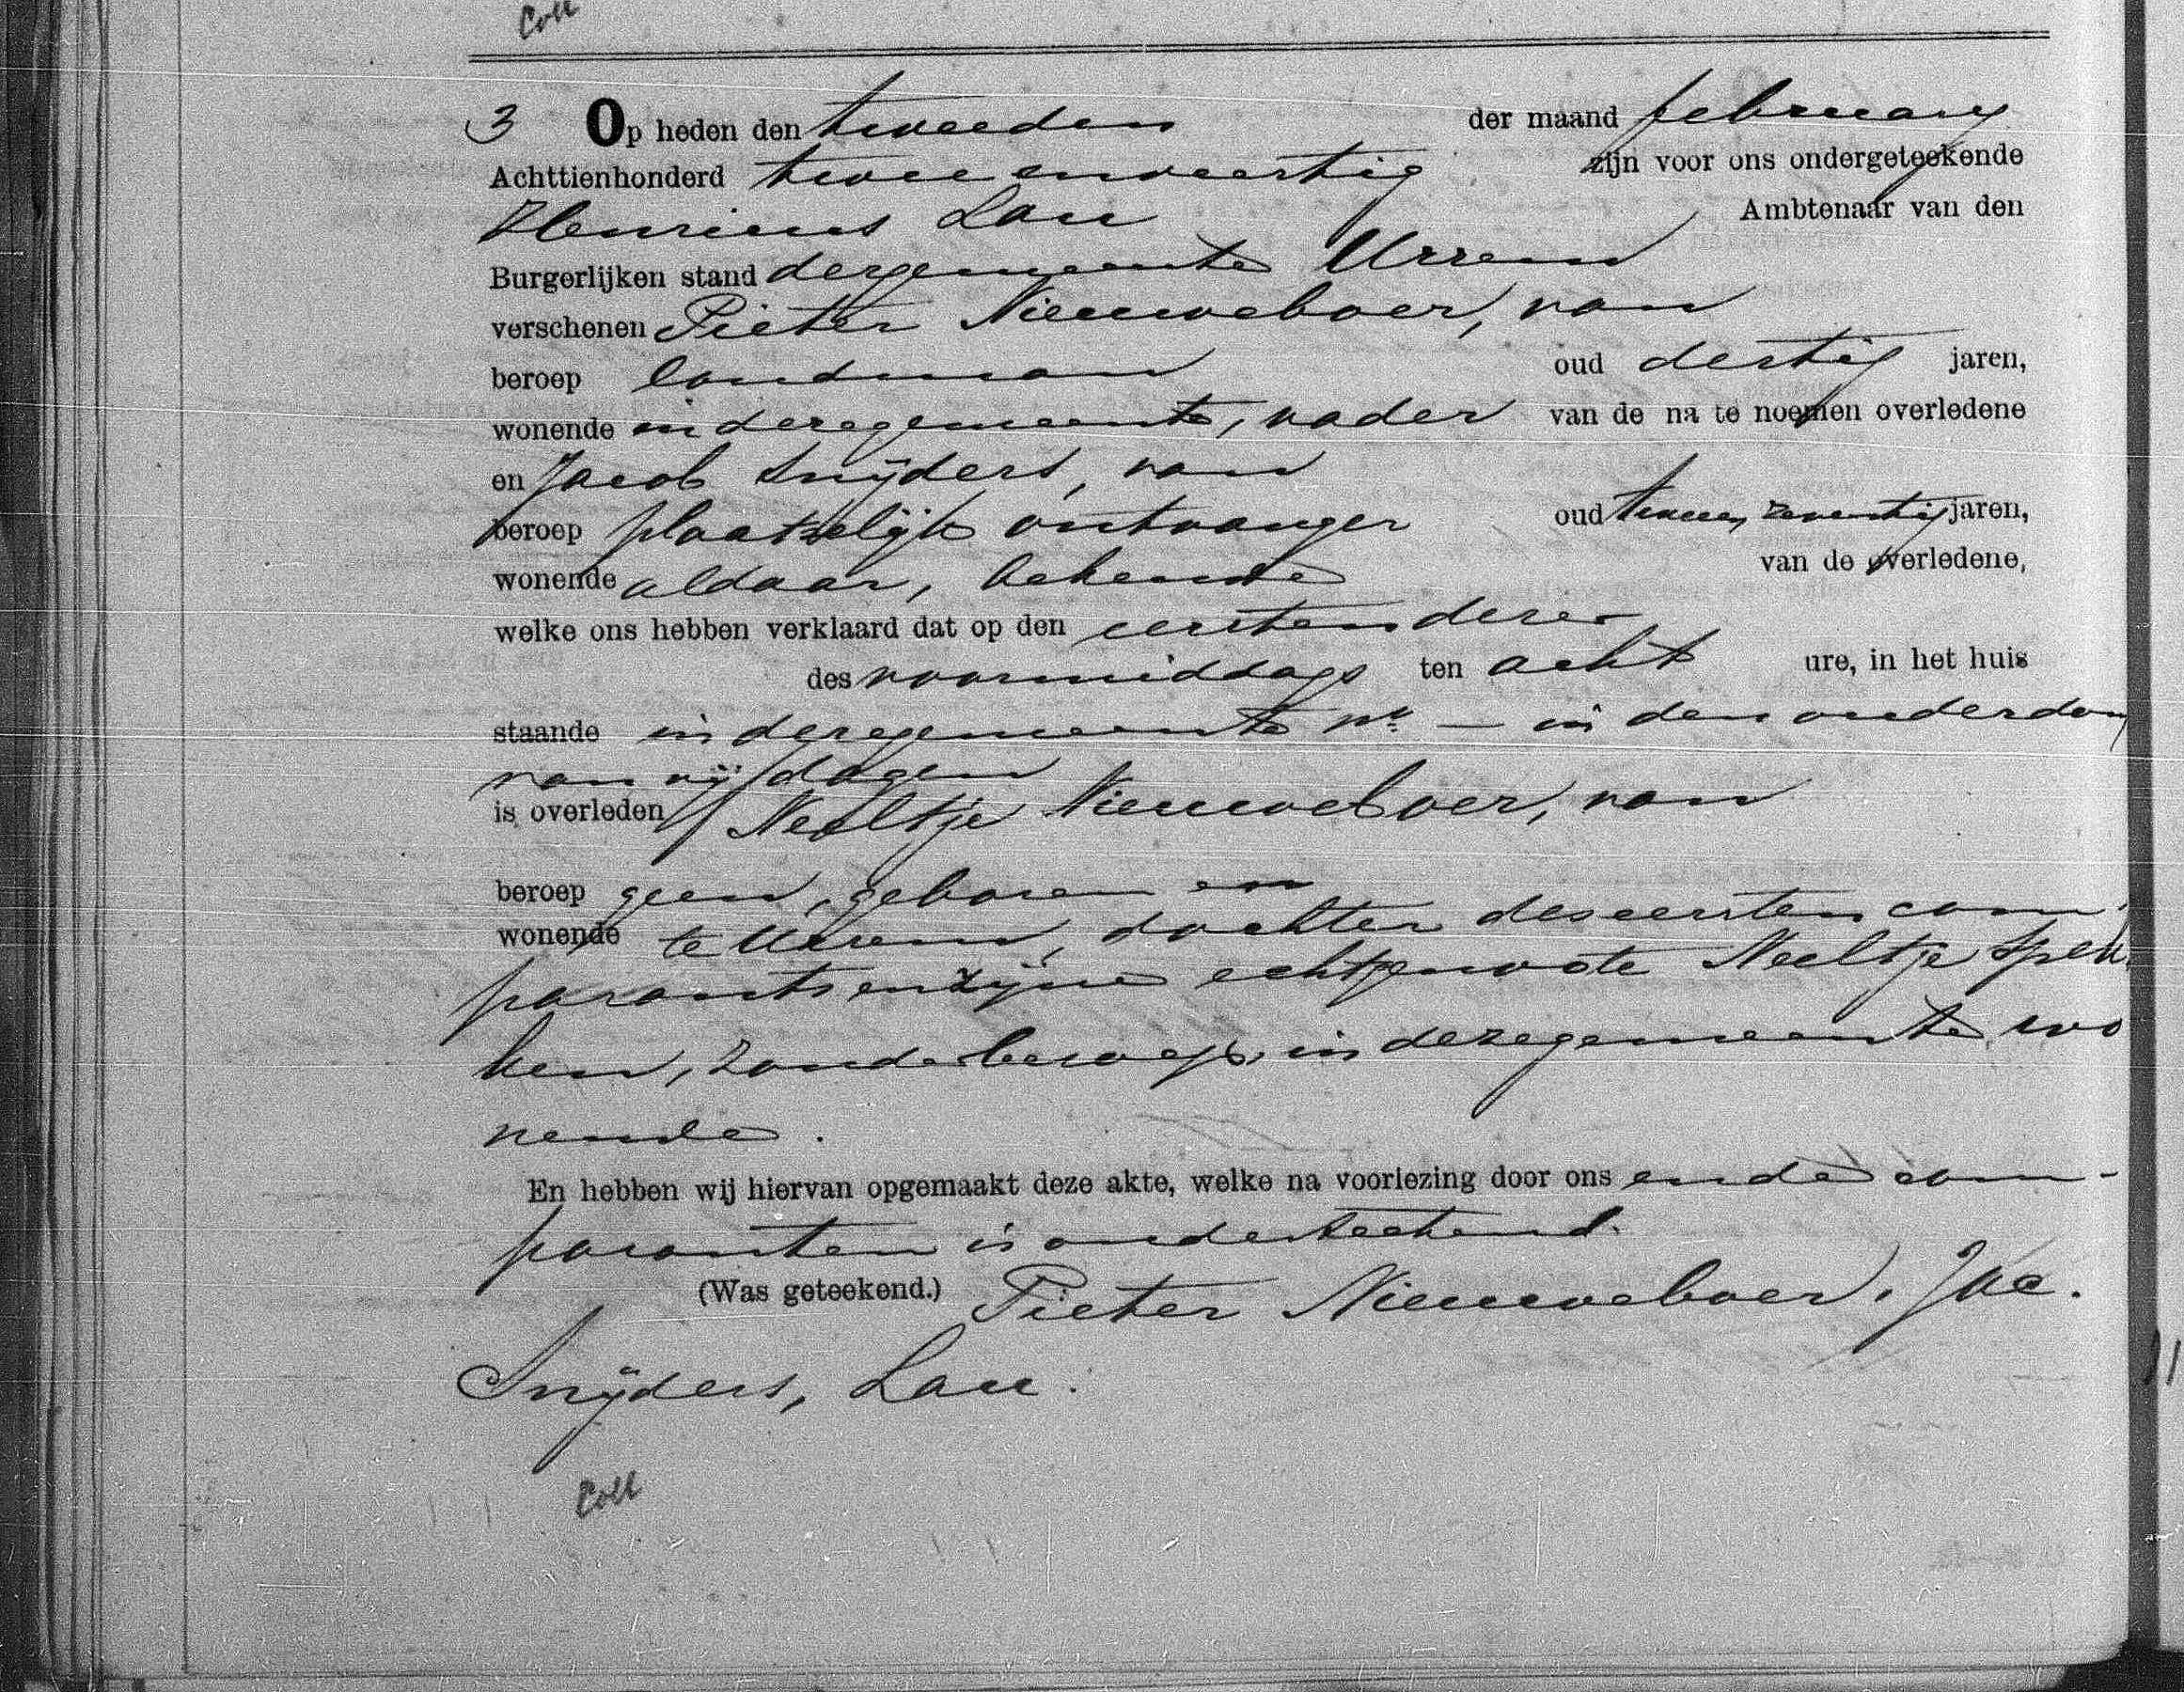 Coll
3 Op heden den tweeden der maand february
Achttienhonderd twee en veertig zijn voor ons ondergeteekende
Henricus Lau Ambtenaar van den
Burgerlijken stand der gemeente Ursem
verschenen Pieter Nieuweboer, van
beroep landman oud dertig jaren,
wonende in deze gemeente, vader van de na te noemen overledene
en Jacob Snijders, van
beroep plaatselijk ontvanger oud twee en zeventig jaren,
wonende aldaar, bekende van de overledene,
welke ons hebben verklaard dat op den eersten dezer
des voormiddags ten acht ure, in het huis
staande in deze gemeente No. — in den ouderdom
van vijf dagen
is overleden Neeltje Nieuweboer, van
beroep geen, geboren en
wonende te Ursem, dochter des eersten com
parants en zijne echtgenoote Neeltje Spek
ken, zonder beroep, in deze gemeente wo
nende.
En hebben wij hiervan opgemaakt deze akte, welke na voorlezing door ons en de com-
paranten is onderteekend.
(Was geteekend.) Pieter Nieuweboer, Jac.
Snijders, Lau.
Coll